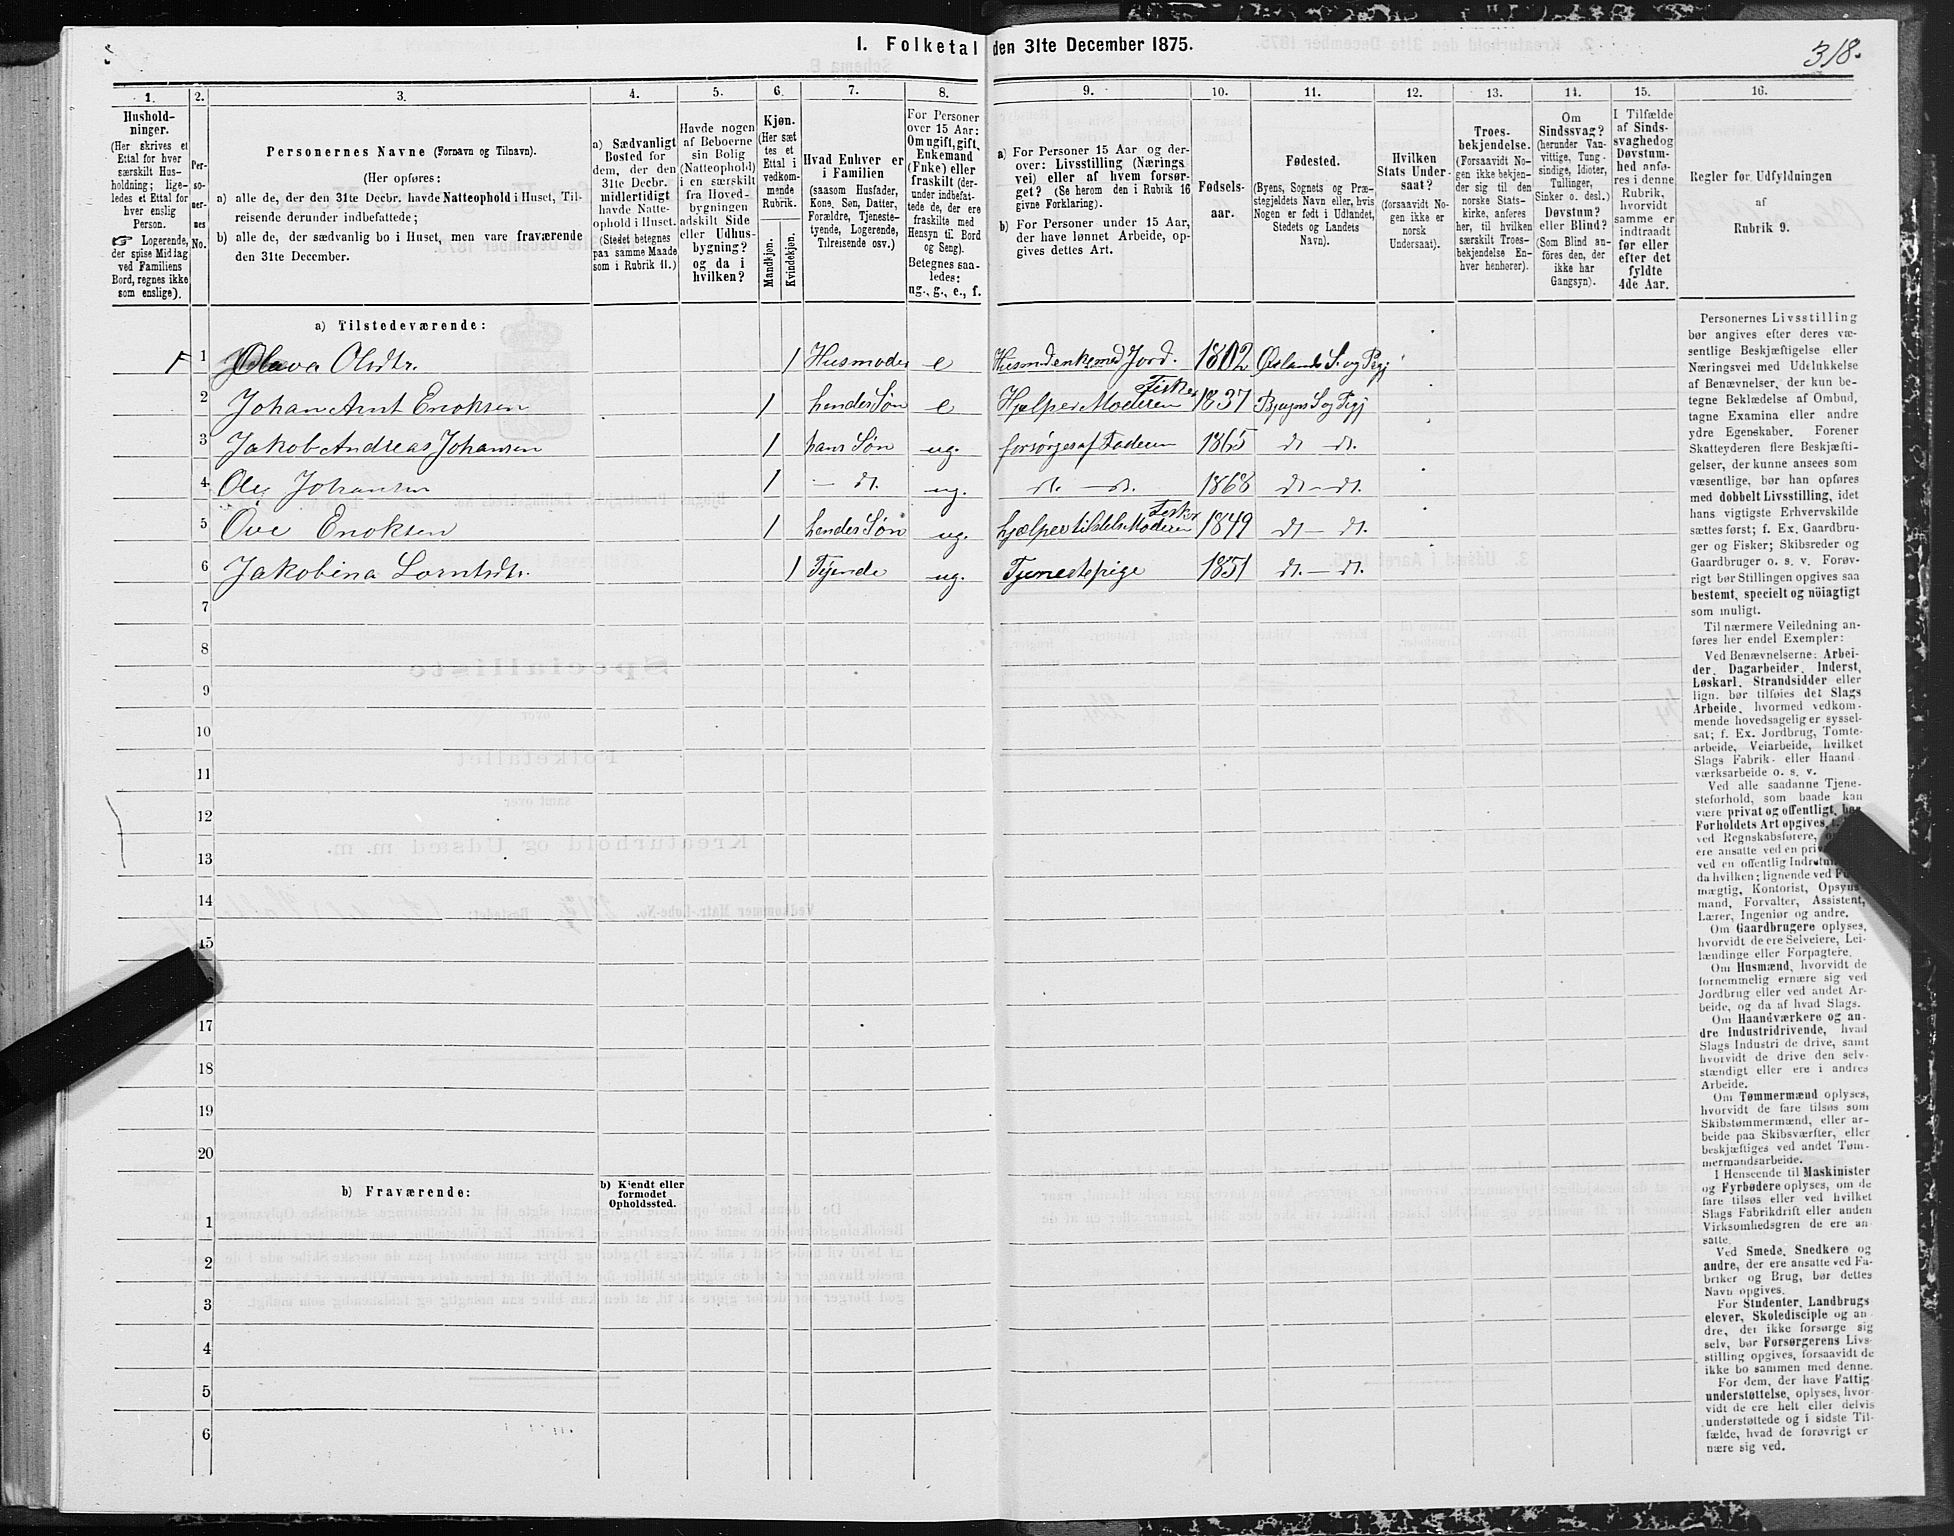 I. Folketal den 31te December 1875.
318.
1. 2. 3. 4. 5. 6. 7. 8. 9. 10. 11. 12. 13. 14. 15. 16.
Hushold-
ninger.
(Her skrives et
Ettal for hver
særskilt Hus-
holdning; lige-
ledes et Ettal for
hver enslig
Person.
☞ Logerende,
der spise Middag
ved Familiens
Bord, regnes ikke
som enslige).
Per-
so-
ner-
nes
No.
Personernes Navne (Fornavn og Tilnavn).
(Her opføres:
a) alle de, der den 31te Decbr. havde Natteophold i Huset, Til-
reisende derunder indbefattede;
b) alle de, der sædvanlig bo i Huset, men vare fraværende
den 31te December.
a) Sædvanligt
Bosted for
dem, der den
31te Decbr.
midlertidigt
havde Natte-
ophold i Huset.
(Stedet betegnes
paa samme Maade
som i Rubrik 11.)
Havde nogen
af Beboerne
sin Bolig
(Natteophold)
i en særskilt
fra Hoved-
bygningen
adskilt Side
eller Udhus-
bygning?
og da i
hvilken?
Kjøn.
(Her sæt
tes et
Ettal i
vedkom-
mende
Rubrik.
Mandkjøn.
Kvindekjøn.
Hvad Enhver er
i Familien
(saasom Husfader,
Kone, Søn, Datter,
Forældre, Tjeneste-
tyende, Logerende,
Tilreisende osv.)
For Personer
over 15 Aar:
Om ugift, gift,
Enkemand
(Enke) eller
fraskilt (der-
under indbefat-
tede de, der ere
fraskilte med
Hensyn til Bord
og Seng).
Betegnes saa-
ledes:
ug., g., e., f.
a) For Personer 15 Aar og der-
over: Livsstilling (Nærings
vei) eller af hvem forsør-
get? (Se herom den i Rubrik 16
givne Forklaring).
b) For Personer under 15 Aar,
der have lønnet Arbeide, op-
gives dettes Art.
Fødsels-
aar.
Fødested.
(Byens, Sognets og Præ-
stegjeldets Navn eller, hvis
Nogen er født i Udlandet,
Stedets og Landets
Navn).
Hvilken
Stats Under-
saat?
(forsaavidt No-
gen ikke er
norsk
Undersaat).
Troes-
bekjendelse.
(Forsaavidt No-
gen ikke bekjen-
der sig til den
norske Stats-
kirke, anføres
her, til hvilken
særskilt Troes-
bekjendelse En-
hver henhører).
Om
Sindssvag?
(herunder Van-
vittige, Tung-
sindige, Idioter,
Tullinger,
Sinker o. desl.)
Døvstum?
eller Blind?
(Som Blind an-
føres den, der
ikke har
Gangsyn).
I Tilfælde
af Sinds-
svaghed og
Døvstum-
hed anfø-
res i denne
Rubrik,
hvorvidt
samme er
indtraadt
før eller
efter det
fyldte
4de Aar.
Regler for Udfyldningen
af
Rubrik 9.
a) Tilstedeværende:
1 Olava Olsdtr. 1 Husmoder e Husmdenke med Jord. 1802 Ørlands S. og Pgj
2 Johan Arnt Enoksen 1 hendes Søn e Hjælper Moderen Fisker 1837 Bjugns S og Pgj
3 Jakob Andreas Johansen 1 hans Søn ug. forsørges af Faderen 1865 dt. dt.
4 Ole Johansen 1 — dt. ug. dt. — dt. 1868 dt — dt.
5 Ove Enoksen 1 hendes Søn ug. hjælper tildels Moderen Fisker 1849 dt — dt.
6 Jakobina Lorntsdtr. 1 Tjende ug. Tjenestepige 1851 dt. — dt.
7
8
9
10
11
12
13
14
15
17
18
19
20
b) Fraværende:
b) Kjendt eller
formodet
Opholdssted.
1
2
3
4
5
6
Personernes Livsstilling
bør angives efter deres væ-
sentlige Beskjæftigelse eller
Næringsvei med Udelukkelse
af Benævnelser, der kun be-
tegne Beklædelse af Ombud,
tagne Examina eller andre
ydre Egenskaber. Forener
Skatteyderen flere Beskjæfti-
gelser, der kunne ansees som
væsentlige, bør han opføres
med dobbelt Livsstilling, idet
hans vigtigste Erhvervskilde
sættes først; f. Ex. Gaardbru-
ger og Fisker; Skibsreder og
Gaardbruger o. s. v. Forøv-
rigt bør Stillingen opgives saa
bestemt, specielt og nöiagtigt
som muligt.
Til nærmere Veiledning an-
føres her endel Exempler:
Ved Benævnelserne: Arbei-
der, Dagarbeider, Inderst,
Løskarl, Strandsidder eller
lign. bør tilføies det Slags
Arbeide, hvormed vedkom-
mende hovedsagelig er syssel-
sat; f. Ex. Jordbrug, Tomte-
arbeide, Veiarbeide, hvilket
Slags Fabrik- eller Haand-
værksarbeide o. s. v.
Ved alle saadanne Tjene-
steforhold, som baade kan
være privat og offentligt, bør
Forholdets Art opgives,
ved Regnskabsførere,
ere ansatte ved en
ved en offentlig
da hvilken; lignende ved
mægtig, Kontorist,
mand, Forvalter, Assistent,
Lærer, Ingeniør og andre.
Om Gaardbrugere oplyses,
hvorvidt de ere Selveiere, Lei-
lændinge eller Forpagtere.
Om Husmænd, hvorvidt de
fornemmelig ernære sig ved
Jordbrug eller ved andet Ar-
beide, og da af hvad Slags.
Om Haandværkere og an-
dre Industridrivende, hvad
Slags Industri de drive, samt
hvorvidt de drive den selv-
stændigt eller ere i andres
Arbeide.
Om Tømmermænd oplyses,
hvorvidt de fare tilsøs som
Skibstømmermænd, eller ar-
beide paa Skibsværfter, eller
beskjæftiges ved andet Tøm-
mermandsarbeide.
I Henseende til Maskinister
og Fyrbødere oplyses, om de
fare tilsøs eller ved hvilket
Slags Fabrikdrift eller anden
Virksomhedsgren de ere an-
satte.
Ved Smede, Snedkere og
andre, der ere ansatte ved Fa-
briker og Brug, bør dettes
Navn opgives.
For Studenter, Landbrugs
elever, Skoledisciple og an-
dre, der ikke forsørge sig
selv, bør Forsørgerens Livs-
stilling opgives, forsaavidt de
ikke bo sammen med denne.
For dem, der have Fattig-
understøttelse, oplyses, hvor-
vidt de ere helt eller delvis
understøttede og i sidste Til-
fælde, hvad de forøvrigt er
nære sig ved.